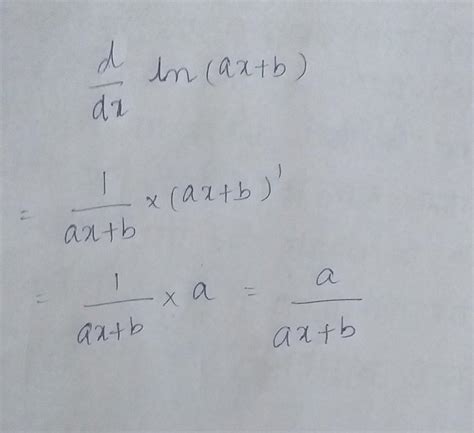 d/dx ln(ax+b)
= 1/(ax+b) × (ax+b)'
= 1/(ax+b) × a = a/(ax+b)